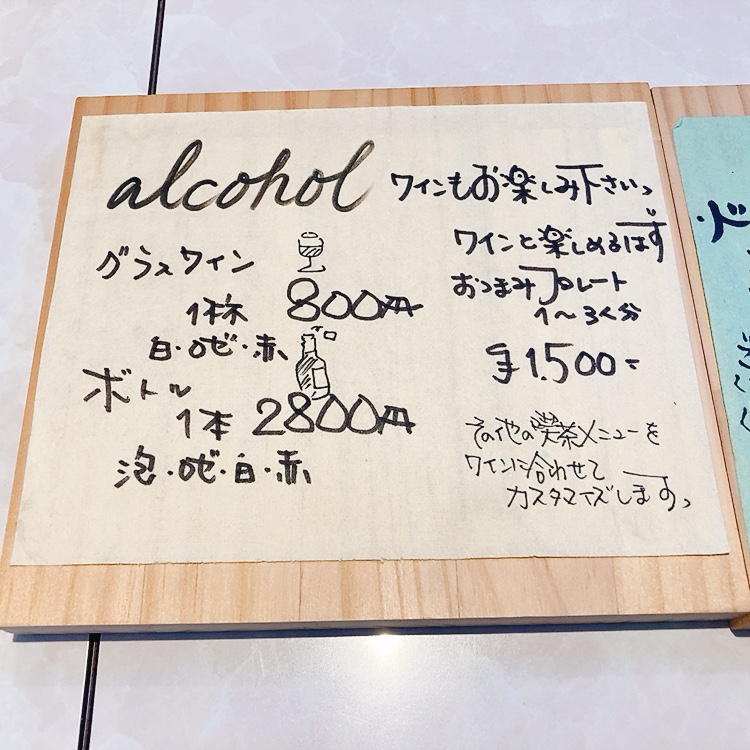 alcohol
ワインもお楽しみ下さい
グラスワイン
1杯 800円
白・ロゼ・赤
ボトル
1本 2800円
泡・ロゼ・白・赤
ワインと楽しめるはず
おつまみプレート
1〜3く分
¥1,500-
その他の喫茶メニューを
ワインに合わせて
カスタマイズします。